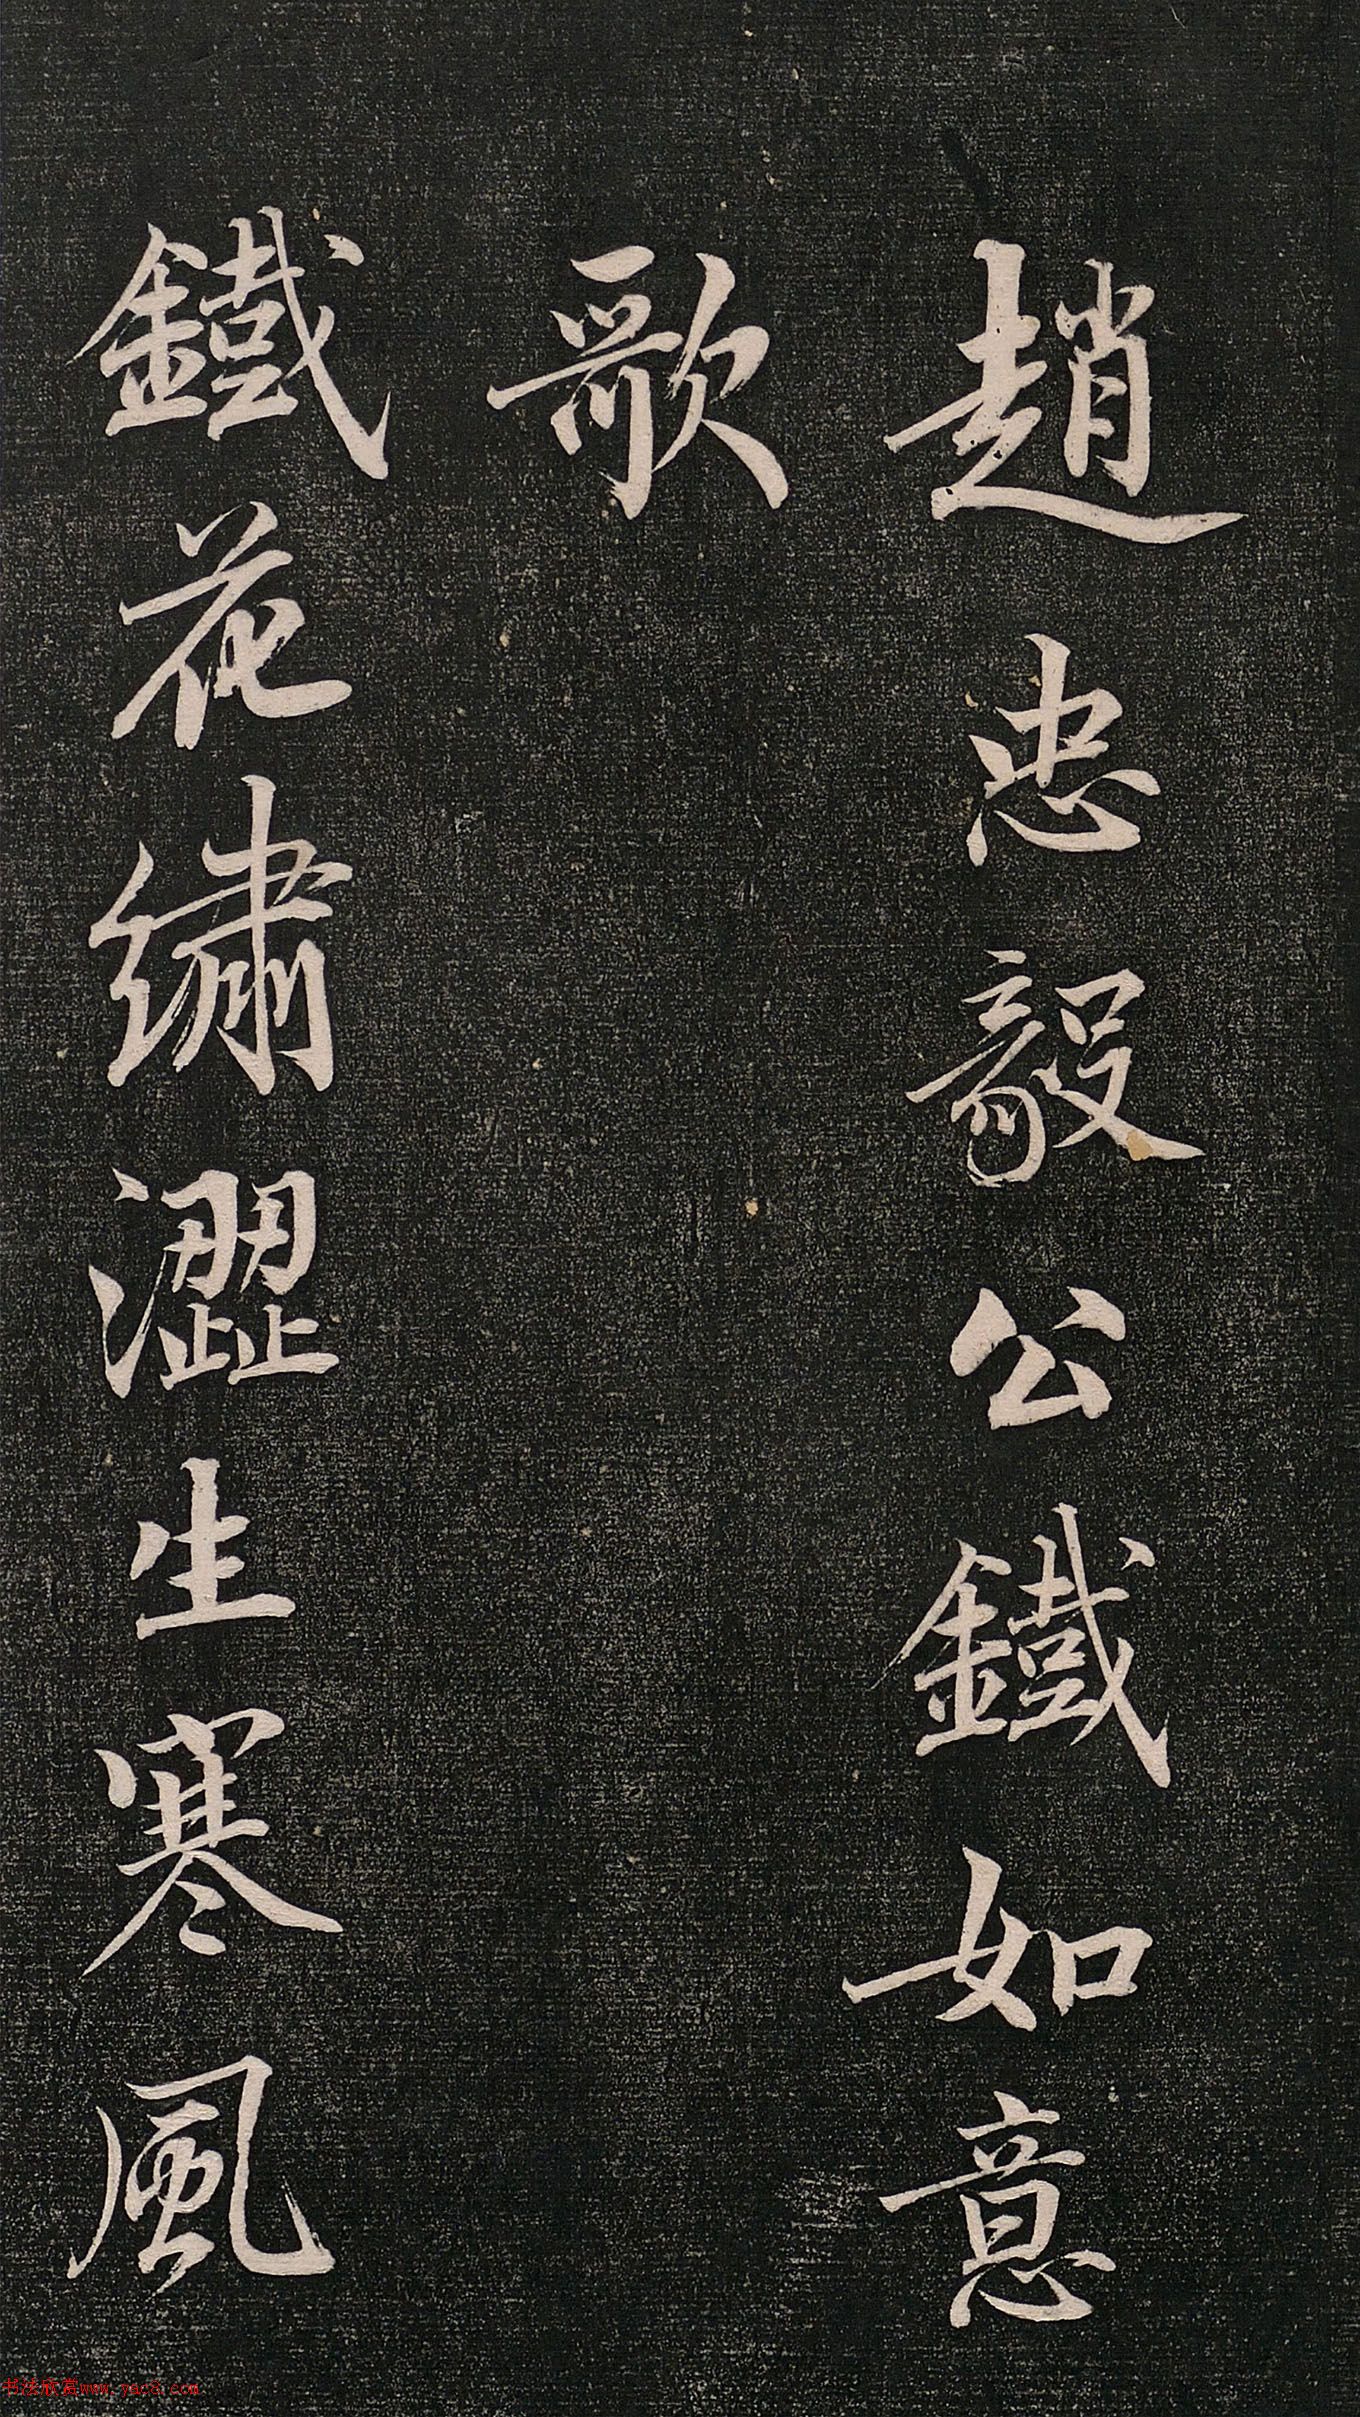 趙忠毅公鐵如意
歌
鐵花繡澀生寒風
书法欣赏www.yac8.com